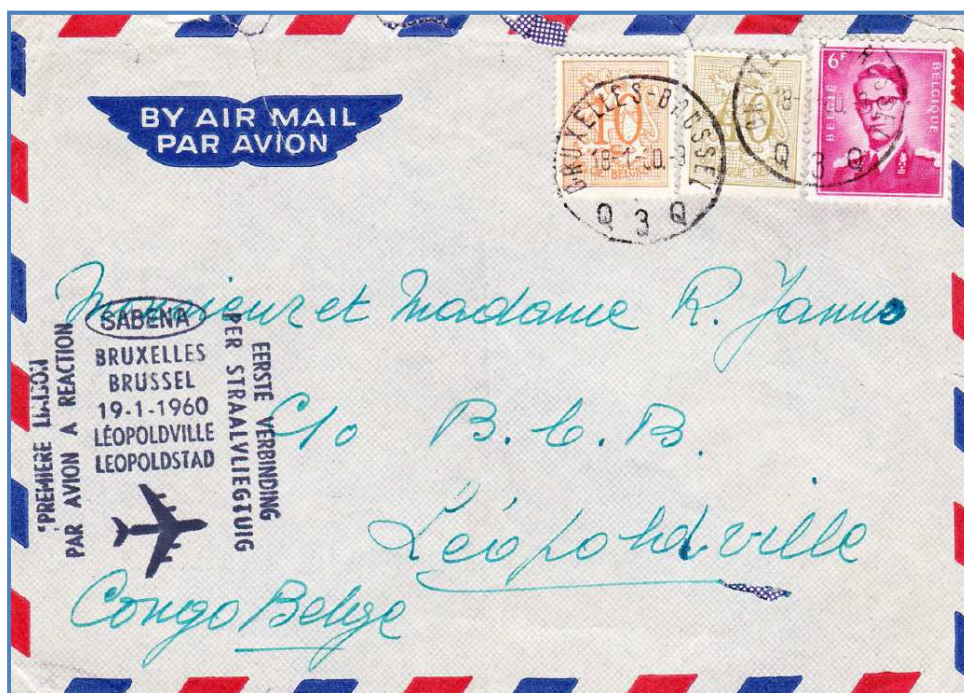 BY AIR MAIL
PAR AVION
10
BRUXELLES-BRUSSEL
18-1-60
Q 3 Q
40
Q 3 Q
6F
BELGIË
BELGIQUE
Monsieur et Madame R.
SABENA
BRUXELLES
BRUSSEL
19-1-1960
LÉOPOLDVILLE
LEOPOLDSTAD
PREMIÈRE LIAISON
PAR AVION A REACTION
EERSTE VERBINDING
PER STRAALVLIEGTUIG
C/o B.C.B.
Léopoldville
Congo Belge